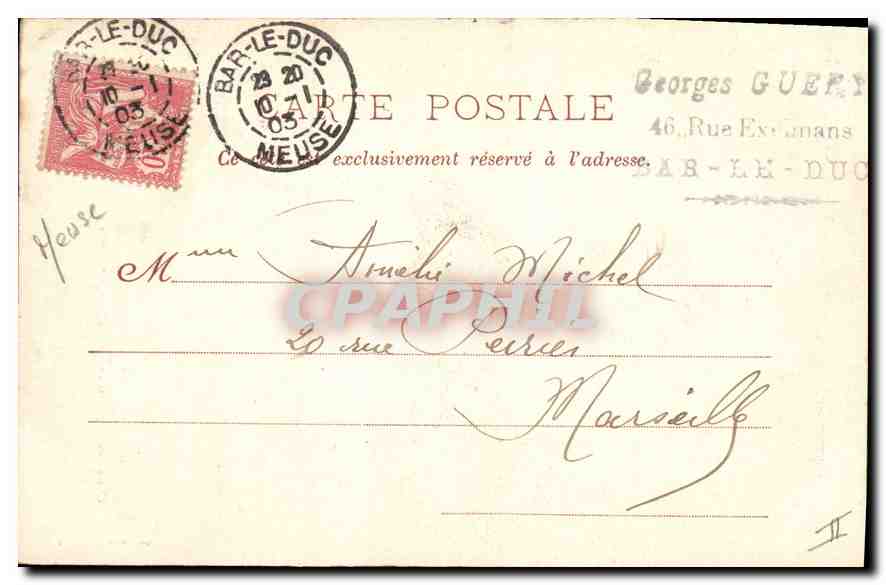 BAR-LE-DUC
10 -1
03
MEUSE
BAR-LE-DUC
23 20
10 -1
03
MEUSE
CARTE POSTALE
Ce côté est exclusivement réservé à l'adresse.
Georges GUERY
46, Rue Exelmans
BAR-LE-DUC
Meuse
Mme Amélie Michel
20 rue Perrier
Marseille
CPAPHIL
II